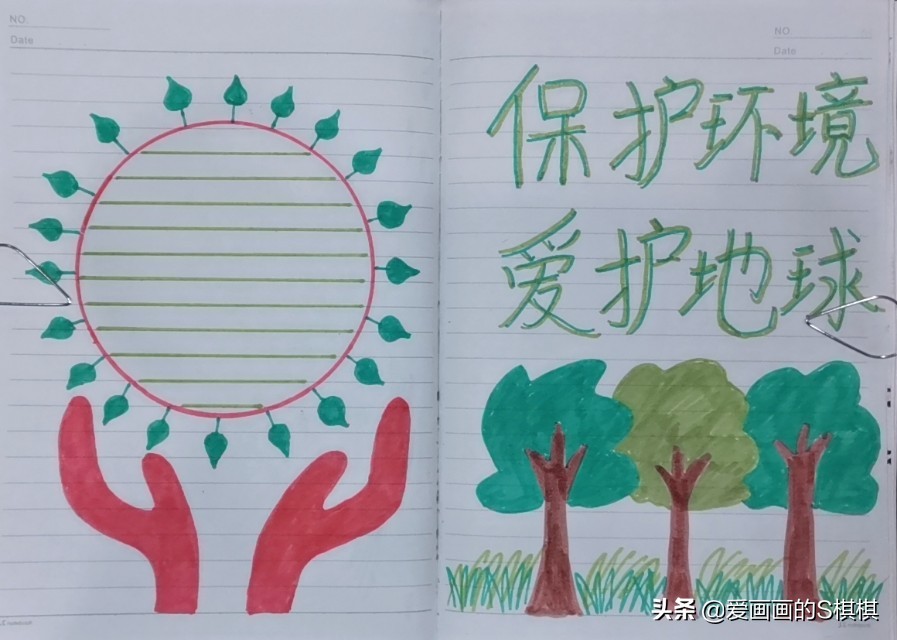 NO.
Date
NO.
Date
保护环境
爱护地球
头条 @爱画画的S棋棋